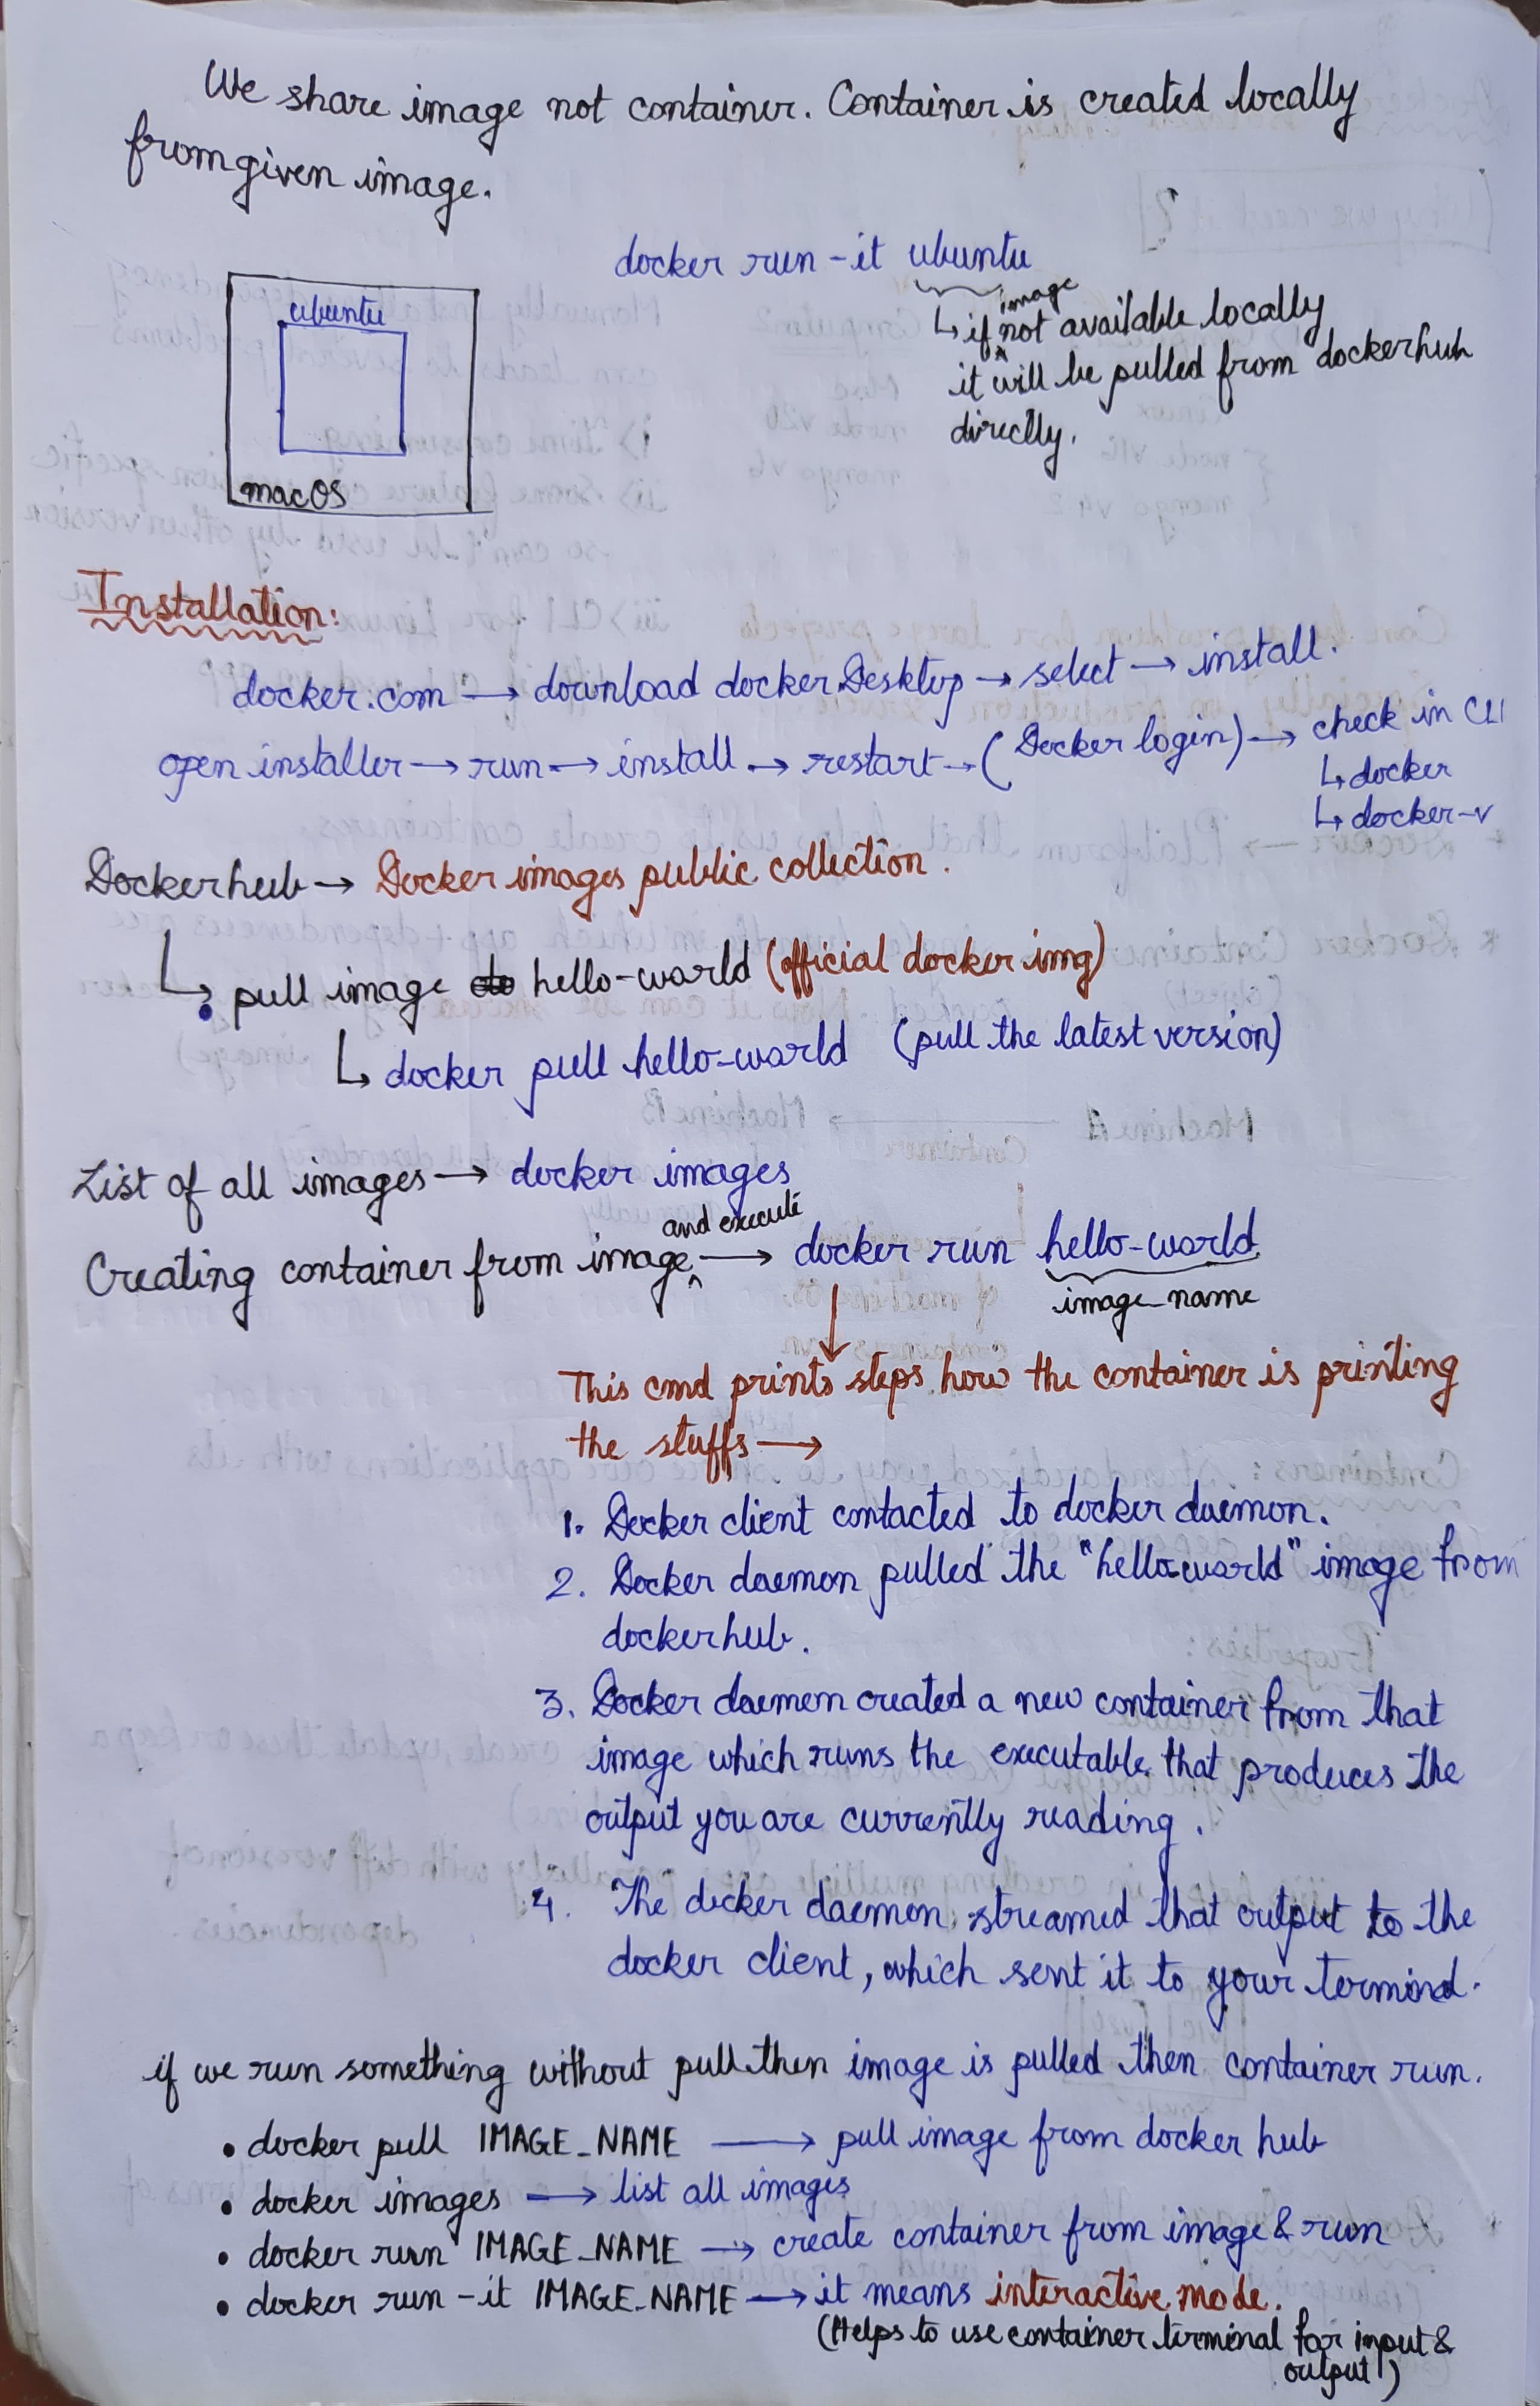 We share image not container. Container is created locally
from given image.
docker run -it ubuntu
image
↳ if ^ not available locally
it will be pulled from dockerhub
directly.
ubuntu
macOS
Installation:
docker.com → download docker Desktop → select → install.
open installer → run → install → restart → (Docker login) → check in CLI
↳ docker
↳ docker -v
Dockerhub → Docker images public collection.
↳ pull image hello-world (official docker img)
↳ docker pull hello-world (pull the latest version)
List of all images → docker images
and execute
Creating container from image ^ → docker run hello-world
image_name
This cmd prints steps how the container is printing
the stuffs →
1. Docker client contacted to docker daemon.
2. Docker daemon pulled the "hello-world" image from
dockerhub.
3. Docker daemon created a new container from that
image which runs the executable that produces the
output you are currently reading.
4. The docker daemon streamed that output to the
docker client, which sent it to your terminal.
if we run something without pull then image is pulled then container run.
• docker pull IMAGE_NAME → pull image from docker hub
• docker images → list all images
• docker run IMAGE_NAME → create container from image & run
• docker run -it IMAGE_NAME → it means interactive mode.
(Helps to use container terminal for input &
output)